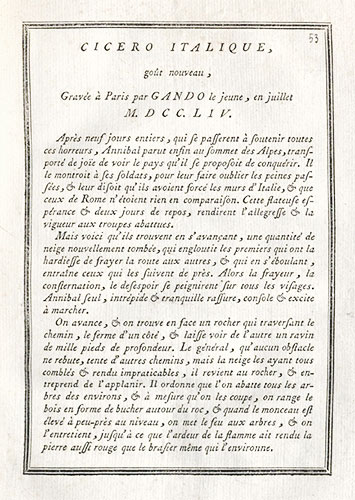 53
CICERO ITALIQUE,
goût nouveau,
Gravée à Paris par GANDO le jeune, en juillet
M. D C C. L I V.
Après neuf jours entiers, qui se passerent à soutenir toutes
ces horreurs, Annibal parut enfin au sommet des Alpes, trans-
porté de joïe de voir le pays qu'il se proposoit de conquérir. Il
le montroit à ses soldats, pour leur faire oublier les peines pas-
sées, & leur disoit qu'ils avoient forcé les murs d'Italie, & que
ceux de Rome n'étoient rien en comparaison. Cette flateuse es-
pérance & deux jours de repos, rendirent l'allegresse & la
vigueur aux troupes abattues.
Mais voici qu'ils trouvent en s'avançant, une quantité de
neige nouvellement tombée, qui engloutit les premiers qui ont la
hardiesse de frayer la route aux autres, & qui en s'éboulant,
entraîne ceux qui les suivent de près. Alors la frayeur, la
consternation, le desespoir se peignirent sur tous les visages.
Annibal seul, intrépide & tranquille rassure, console & excite
à marcher.
On avance, & on trouve en face un rocher qui traversant le
chemin, le ferme d'un côté, & laisse voir de l'autre un ravin
de mille pieds de profondeur. Le général, qu'aucun obstacle
ne rebute, tente d'autres chemins, mais la neige les ayant tous
comblés & rendu impraticables, il revient au rocher, & en-
treprend de l'applanir. Il ordonne que l'on abatte tous les ar-
bres des environs, & à mesure qu'on les coupe, on range le
bois en forme de bucher autour du roc, & quand le monceau est
élevé à peu-près au niveau, on met le feu aux arbres, & on
l'entretient, jusqu'à ce que l'ardeur de la flamme ait rendu la
pierre aussi rouge que le brasier même qui l'environne.